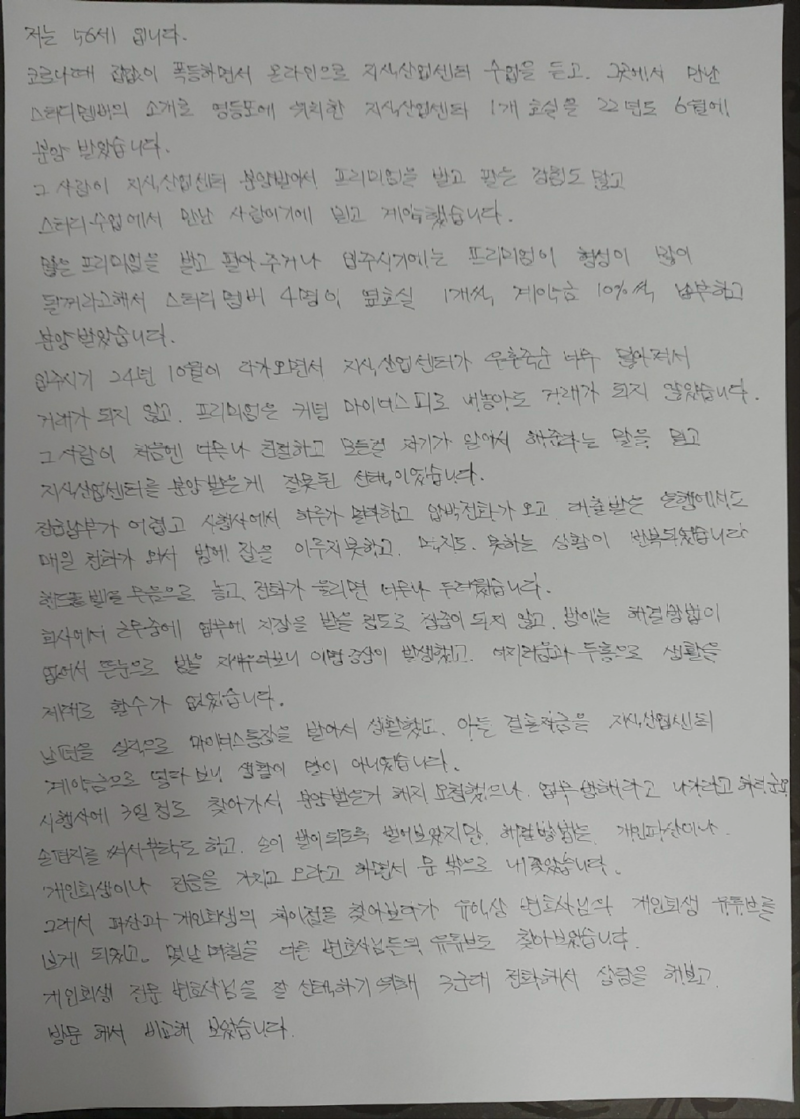 저는 56세 입니다.
코로나때 집값이 폭등하면서 온라인으로 지식산업센터 수업을 듣고. 그곳에서 만난
스터디멤버의 소개로 영등포에 위치한 지식산업센터 1개 호실을 22년도 6월에
분양 받았습니다.
그 사람이 지식산업센터 분양받아서 프리미엄을 받고 팔은 경험도 많고
스터디수업에서 만난 사람이기에 믿고 계약했습니다.
많은 프리미엄을 받고 팔아주거나 입주시기에는 프리미엄이 형성이 많이
될꺼라고해서 스터디멤버 4명이 옆호실 1개씩, 계약금 10%씩 납부하고
분양 받았습니다.
입주시기 24년 10월이 다가오면서 지식산업센터가 우후죽순 너무 많아져서
거래가 되지 않고. 프리미엄은 커텽 마이너스피로 내놓아도 거래가 되지 않았습니다.
그 사람이 처음엔 너무나 친절하고 모든걸 자기가 알아서 해준다는 말을 믿고
지식산업센터를 분양받은게 잘못된 선택이였습니다.
잔금납부가 어렵고 시행사에서 하루가 멀다하고 압박전화가 오고 대출받은 은행에서도
매일 전화가 와서 밤에 잠을 이루지못하고. 먹지도 못하는 상황이 반복되었습니다
핸드폰 벨을 무음으로 놓고, 전화가 울리면 너무나 두려웠습니다.
회사에서 근무중에 업무에 지장을 받을 정도로 집중이 되지 않고. 밤에는 해결방법이
없어서 뜬눈으로 밤을 지새우다보니 이명증상이 발생했고. 어지러움과 두통으로 생활을
제대로 할수가 없었습니다.
남편은 실직으로 마이너스통장을 받아서 생활했고. 아들 결혼자금을 지식산업센터
계약금으로 넣다보니 생활이 말이 아니였습니다.
시행사에 3일정도 찾아가서 분양받은거 해지 요청했으나. 업무방해라고 나가라고 하더군요
손편지를 써서 부탁도 하고. 손이 발이되도록 빌어보았지만. 해결방법은 개인파산이나
개인회생이나 잔금을 가지고 오라고 하면서 문 밖으로 내쫓았습니다.
그래서 파산과 개인회생의 차이점을 찾아보다가 변호사님의 개인회생 유튜브를
보게 되었고. 몇날 며칠을 다른 변호사님들의 유튜브도 찾아보았습니다.
개인회생 전문 변호사님을 잘 선택하기 위해 3군데 전화해서 상담을 해보고.
방문 해서 비교해 보았습니다.